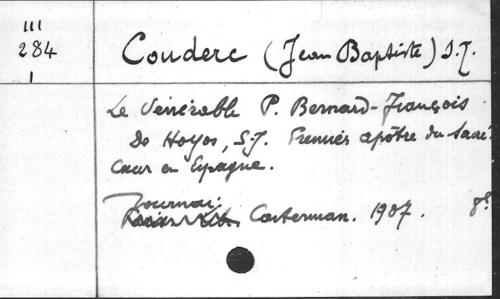 III
284
I
Couderc (Jean Baptiste) S.J.
Le Vénérable P. Bernard-François
De Hoyos, S.J. Premier apôtre du Sacré
Cœur en Espagne.
Tournai:
Casterman. 1907. 8º